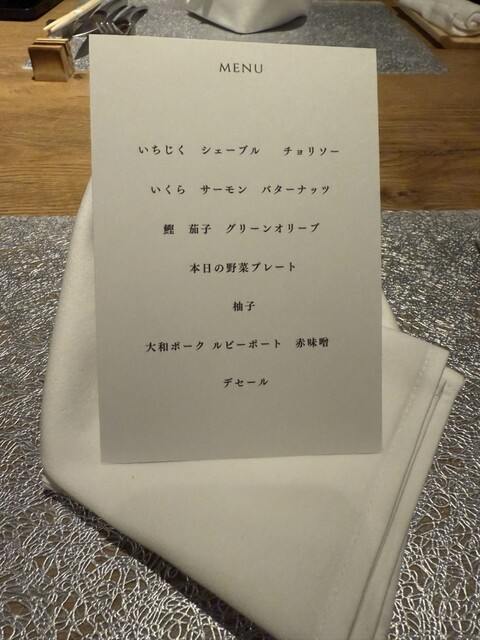 MENU
いちじく　シェーブル　チョリソー
いくら　サーモン　バターナッツ
鰹　茄子　グリーンオリーブ
本日の野菜プレート
柚子
大和ポーク ルビーポート　赤味噌
デセール